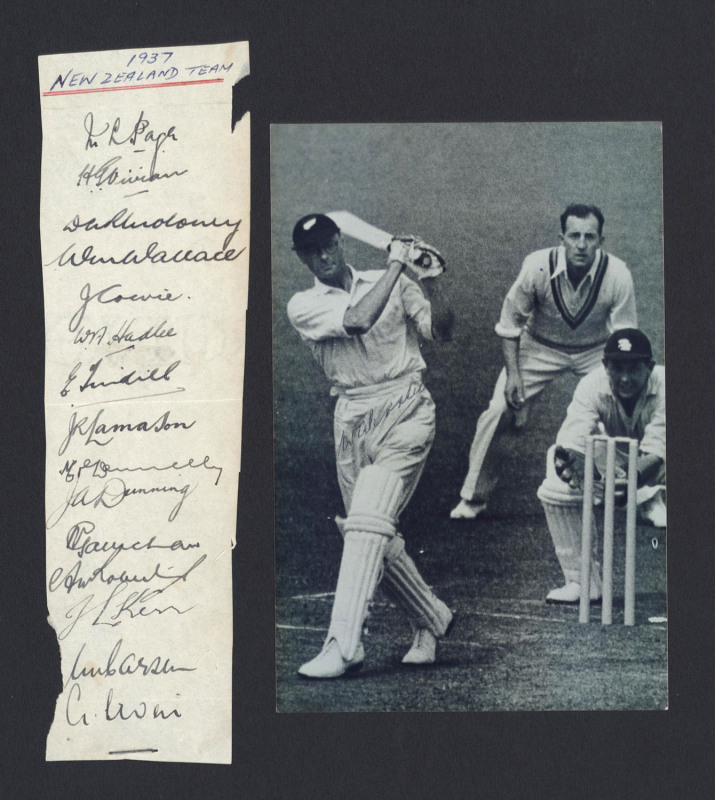 1937
NEW ZEALAND TEAM
M L Page
H G Vivian
D A R Moloney
W M Wallace
J Cowie.
W.A. Hadlee
E Tindill
J R Lamason
M P Donnelly
J A Dunning
N Gallichan
A W Roberts
J L Kerr
W N Carson